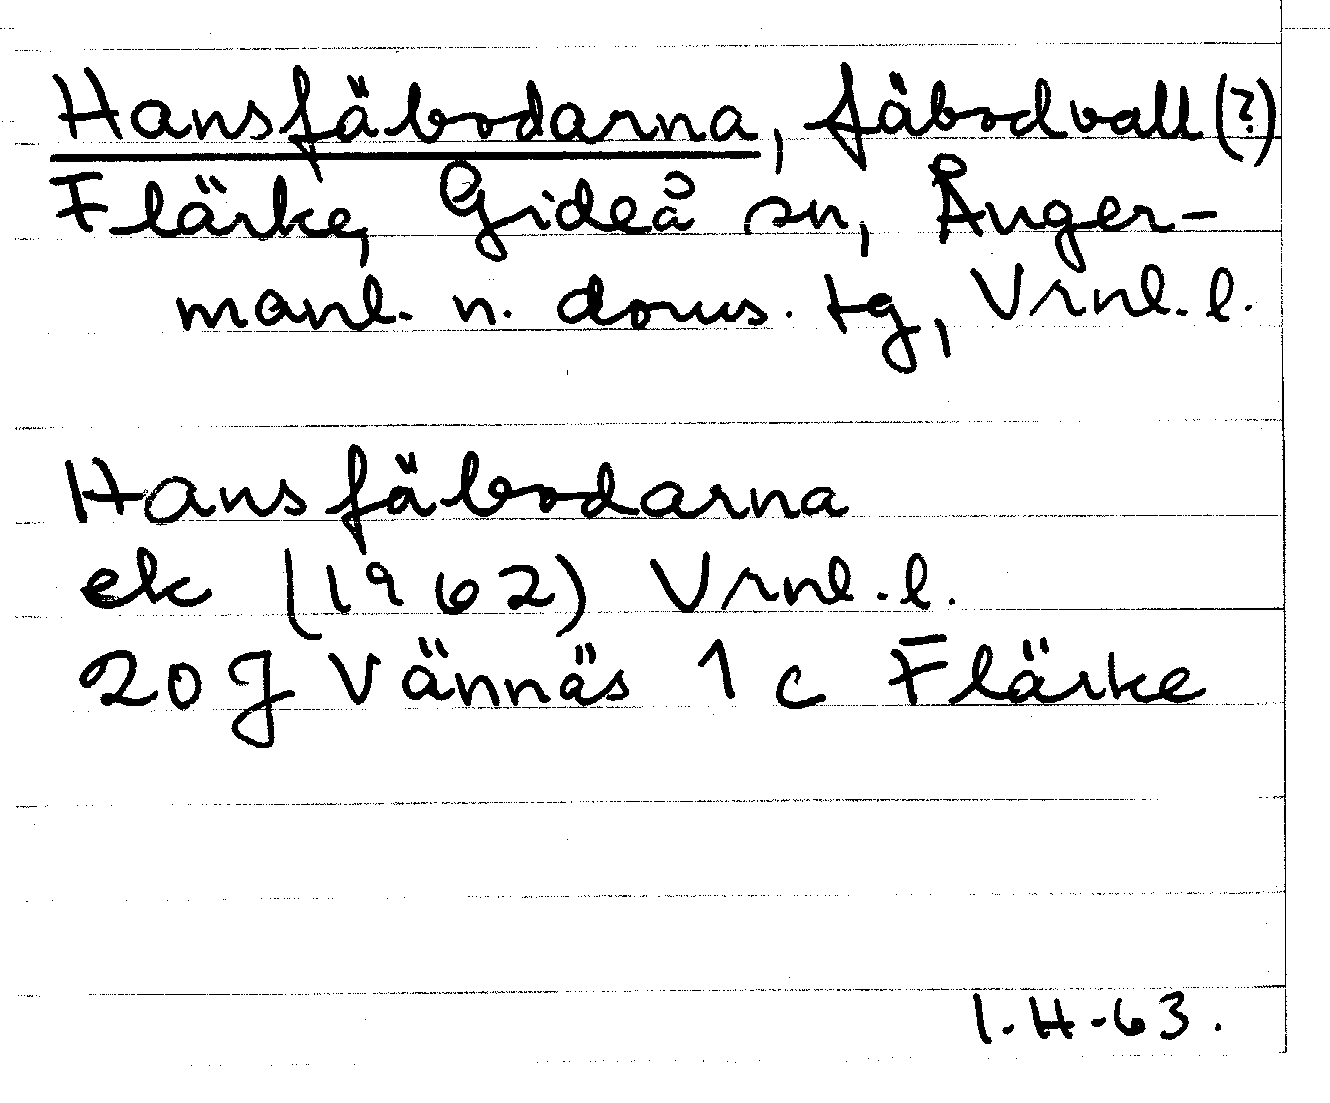 Hansfäbodarna, fäbodvall (?)
Flärke, Gideå sn, Ånger-
manl. n. doms. tg, Vrnl. l.
Hansfäbodarna
ek (1962) Vrnl. l.
20 J Vännäs 1 c Flärke
I. H-63.